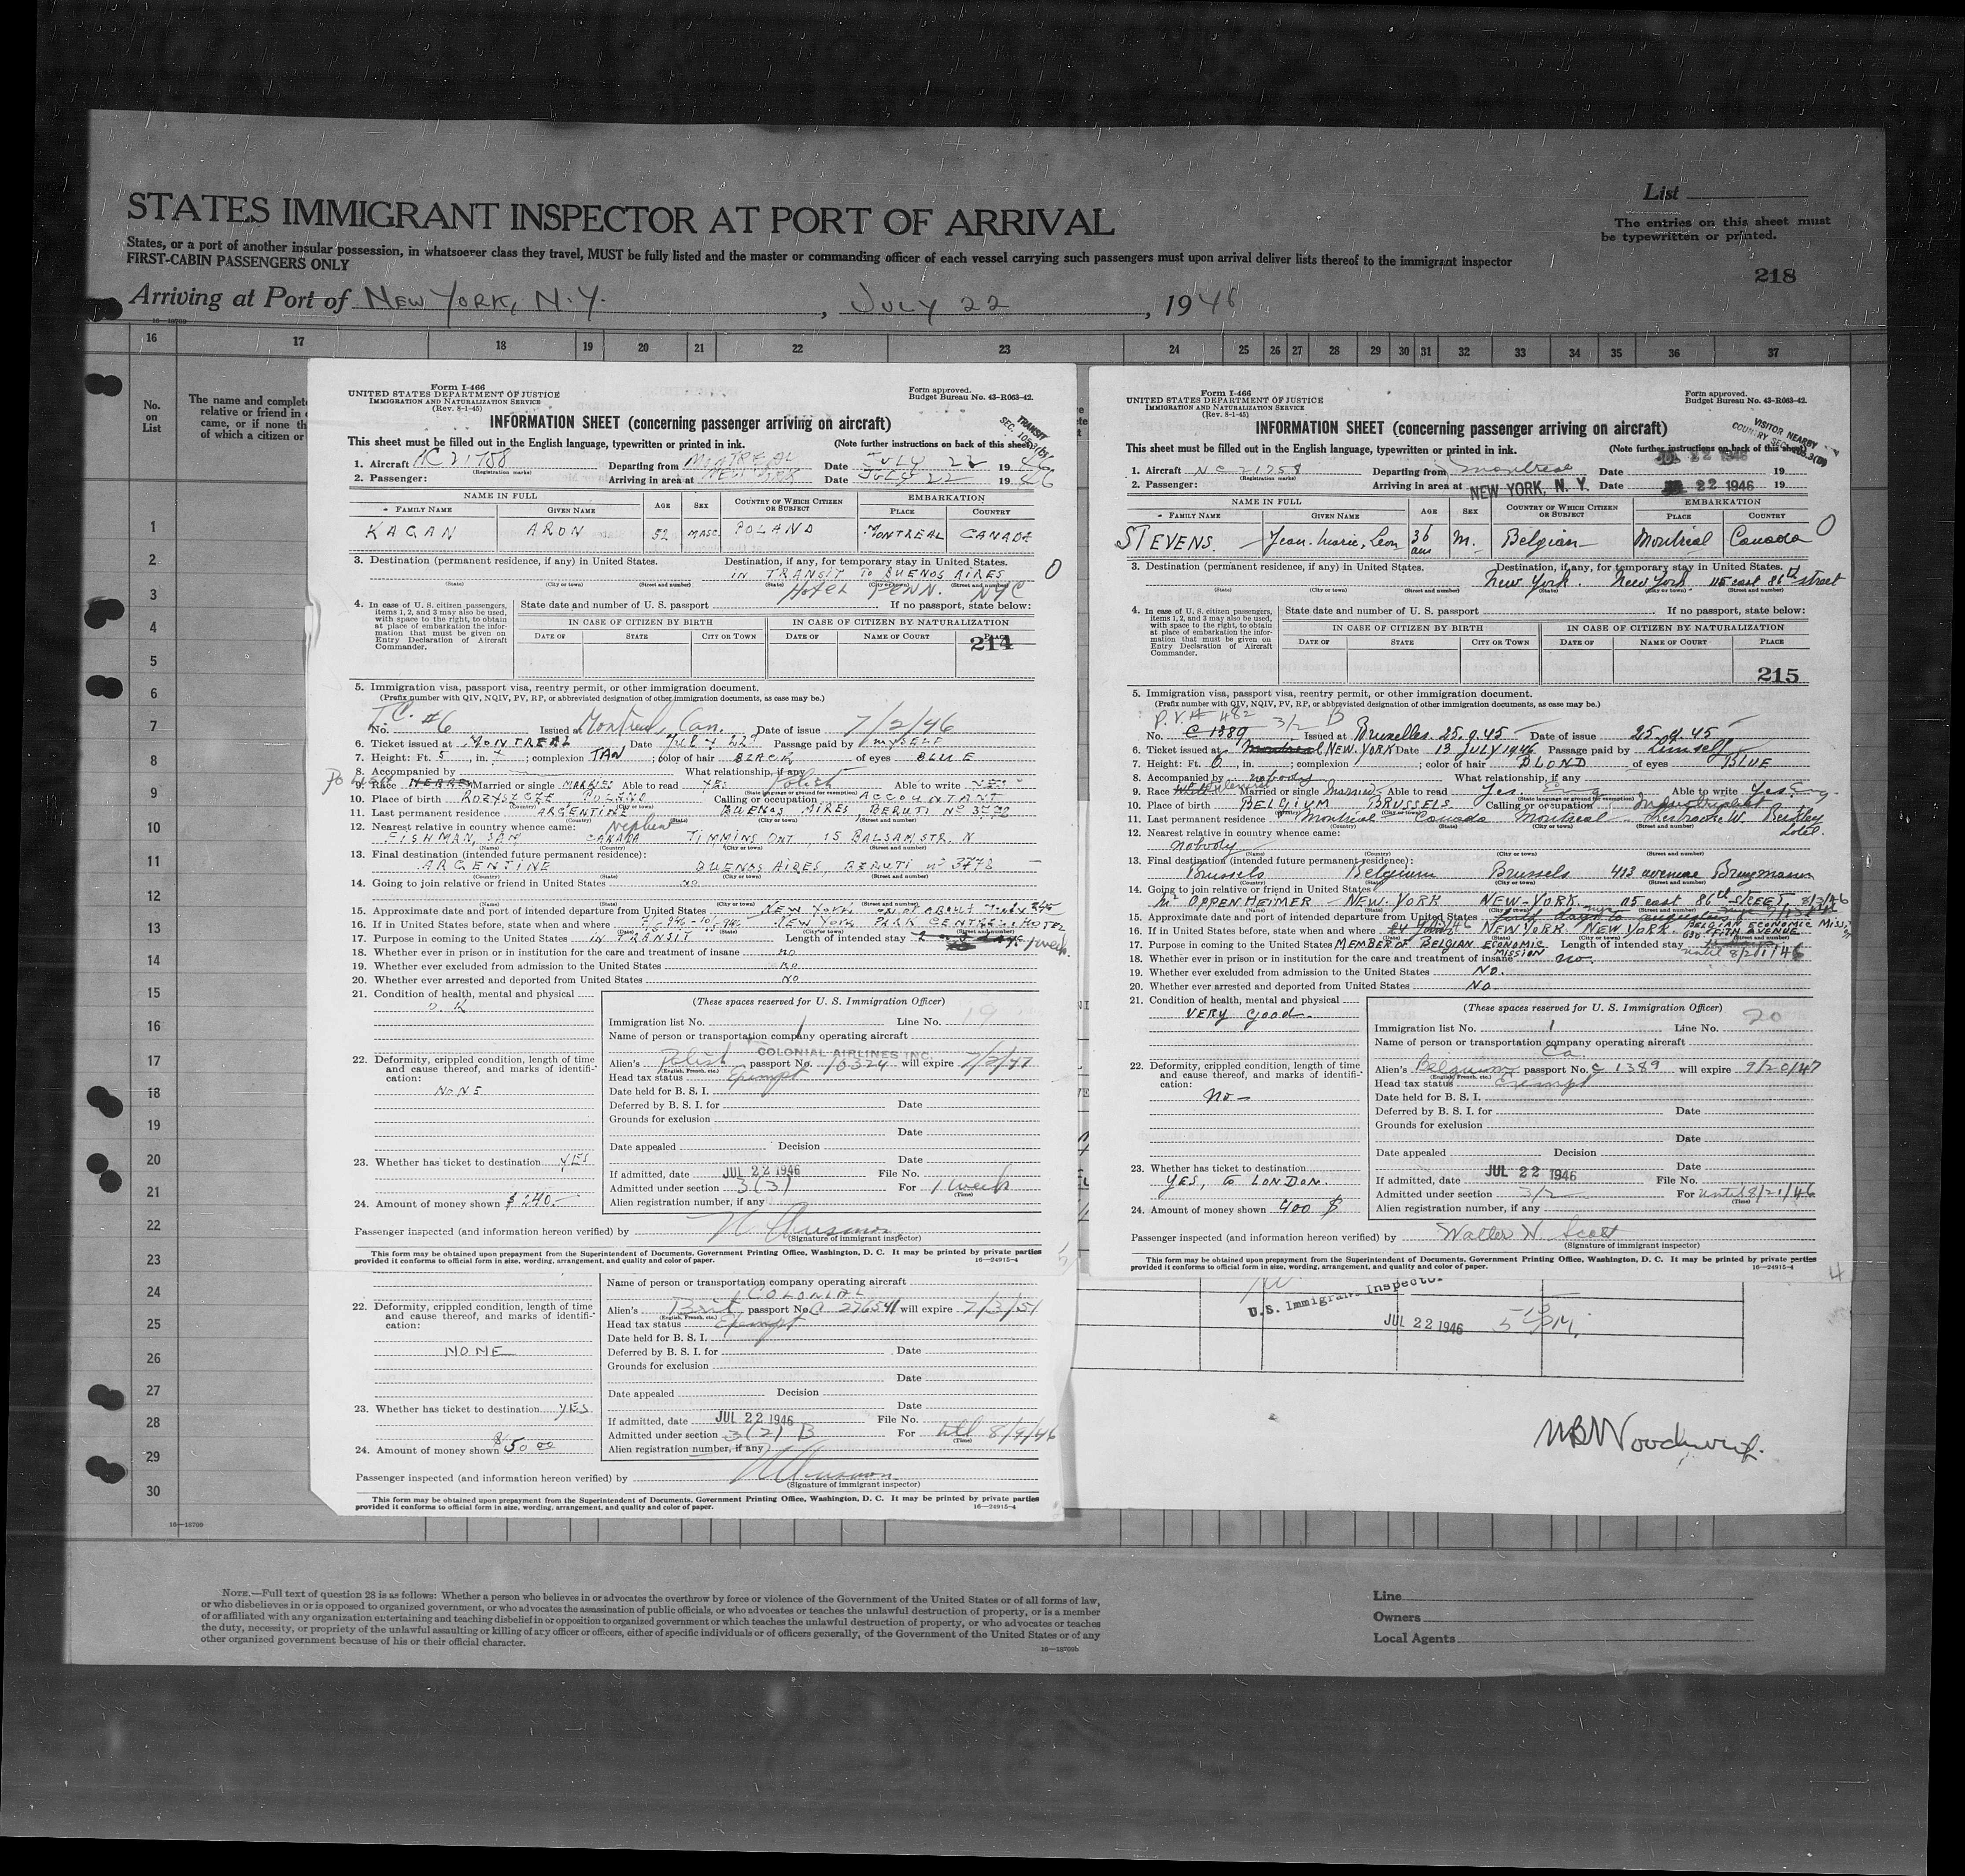 STATES IMMIGRANT INSPECTOR AT PORT OF ARRIVAL
List
The entries on this sheet must
be typewritten or printed.
States, or a port of another insular possession, in whatsoever class they travel, MUST be fully listed and the master or commanding officer of each vessel carrying such passengers must upon arrival deliver lists thereof to the immigrant inspector
FIRST-CABIN PASSENGERS ONLY
218
Arriving at Port of NEW YORK, N.Y. , JULY 22 , 1946
16—18709
16 17 18 19 20 21 22 23 24 25 26 27 28 29 30 31 32 33 34 35 36 37
No.
on
List
The name and complete
relative or friend in
came, or if none th
of which a citizen or
1
2
3
4
5
6
7
8
9
10
11
12
13
14
15
16
17
18
19
20
21
22
23
24
25
26
27
28
29
30
16—18709
Form I-466
UNITED STATES DEPARTMENT OF JUSTICE
IMMIGRATION AND NATURALIZATION SERVICE
(Rev. 8-1-45)
Form approved.
Budget Bureau No. 43-R063-42.
INFORMATION SHEET (concerning passenger arriving on aircraft)
TRANSIT
This sheet must be filled out in the English language, typewritten or printed in ink. (Note further instructions on back of this sheet)
1. Aircraft NC 21758 Departing from MONTREAL Date JULY 22 1946
(Registration marks)
2. Passenger: Arriving in area at NEW YORK Date JULY 22 1946
NAME IN FULL AGE SEX COUNTRY OF WHICH CITIZEN OR SUBJECT EMBARKATION
FAMILY NAME GIVEN NAME PLACE COUNTRY
KAGAN ARON 52 MASC. POLAND MONTREAL CANADA
3. Destination (permanent residence, if any) in United States. Destination, if any, for temporary stay in United States.
IN TRANSIT TO BUENOS AIRES
(State) (City or town) (Street and number) (State) (City or town) (Street and number)
Hotel PENN. NYC
O
4. In case of U. S. citizen passengers, items 1, 2, and 3 may also be used, with space to the right, to obtain at place of embarkation the information that must be given on Entry Declaration of Aircraft Commander.
State date and number of U. S. passport If no passport, state below:
IN CASE OF CITIZEN BY BIRTH IN CASE OF CITIZEN BY NATURALIZATION
DATE OF STATE CITY OR TOWN DATE OF NAME OF COURT PLACE
214
5. Immigration visa, passport visa, reentry permit, or other immigration document.
(Prefix number with QIV, NQIV, PV, RP, or abbreviated designation of other immigration documents, as case may be.)
No. T.C. #6 Issued at Montreal, Can. Date of issue 7/2/46
6. Ticket issued at MONTREAL Date JULY 22 Passage paid by MYSELF
7. Height: Ft. 5, in. 7; complexion TAN; color of hair BLACK of eyes BLUE
8. Accompanied by What relationship, if any
9. Race HEBREW Married or single MARRIED Able to read YES Polish Able to write YES
(State language or ground for exemption)
10. Place of birth ROZYSZCZE POLAND Calling or occupation ACCOUNTANT
11. Last permanent residence ARGENTINE BUENOS AIRES BERUTI No 3778
(Country) (State) (City or town) (Street and number)
12. Nearest relative in country whence came: Nephew
FISHMAN, JAN CANADA TIMMINS ONT, 15 BALSAM STR. N
(Name) (Country) (City or town) (Street and number)
13. Final destination (intended future permanent residence):
ARGENTINE BUENOS AIRES, BERUTI No 3778
(Country) (State) (City or town) (Street and number)
14. Going to join relative or friend in United States NO
(Name) (State) (City or town) (Street and number)
15. Approximate date and port of intended departure from United States NEW YORK ON OR ABOUT
16. If in United States before, state when and where NEW YORK PARK CENTRAL HOTEL
(Date) (State) (City or town) (Street and number)
17. Purpose in coming to the United States IN TRANSIT Length of intended stay 1 week
18. Whether ever in prison or in institution for the care and treatment of insane NO
19. Whether ever excluded from admission to the United States NO
20. Whether ever arrested and deported from United States NO
21. Condition of health, mental and physical
O.K
(These spaces reserved for U. S. Immigration Officer)
Immigration list No. 1 Line No. 19
Name of person or transportation company operating aircraft
COLONIAL AIRLINES INC.
22. Deformity, crippled condition, length of time and cause thereof, and marks of identification:
NONE
Alien's Polish passport No. 10324 will expire 7/2/47
(English, French, etc.)
Head tax status Exempt
Date held for B. S. I.
Deferred by B. S. I. for Date
Grounds for exclusion
Date
Date appealed Decision
Date
23. Whether has ticket to destination YES
If admitted, date JUL 22 1946 File No.
Admitted under section 3(3) For 1 week
(Time)
24. Amount of money shown $ 240.—
Alien registration number, if any
Passenger inspected (and information hereon verified) by
(Signature of immigrant inspector)
This form may be obtained upon prepayment from the Superintendent of Documents, Government Printing Office, Washington, D. C. It may be printed by private parties
provided it conforms to official form in size, wording, arrangement, and quality and color of paper. 16—24915-4
Name of person or transportation company operating aircraft
COLONIAL
22. Deformity, crippled condition, length of time and cause thereof, and marks of identification:
NONE
Alien's Brit. passport No. C 276541 will expire 7/3/51
(English, French, etc.)
Head tax status Exempt
Date held for B. S. I.
Deferred by B. S. I. for Date
Grounds for exclusion
Date
Date appealed Decision
Date
23. Whether has ticket to destination YES
If admitted, date JUL 22 1946 File No.
Admitted under section 3(2) B For until 8/9/46
(Time)
24. Amount of money shown $50.00
Alien registration number, if any
Passenger inspected (and information hereon verified) by
(Signature of immigrant inspector)
This form may be obtained upon prepayment from the Superintendent of Documents, Government Printing Office, Washington, D. C. It may be printed by private parties
provided it conforms to official form in size, wording, arrangement, and quality and color of paper. 16—24915-4
Form I-466
UNITED STATES DEPARTMENT OF JUSTICE
IMMIGRATION AND NATURALIZATION SERVICE
(Rev. 8-1-45)
Form approved.
Budget Bureau No. 43-R063-42.
INFORMATION SHEET (concerning passenger arriving on aircraft)
VISITOR NEARBY
This sheet must be filled out in the English language, typewritten or printed in ink. (Note further instructions on back of this sheet)
1. Aircraft NC 21758 Departing from Montreal Date JUL 22 1946 19
(Registration marks)
2. Passenger: Arriving in area at NEW YORK, N. Y. Date 22 1946 19
NAME IN FULL AGE SEX COUNTRY OF WHICH CITIZEN OR SUBJECT EMBARKATION
FAMILY NAME GIVEN NAME PLACE COUNTRY
STEVENS. Jean-Marie, Leon 36 ans M. Belgian Montreal Canada O
3. Destination (permanent residence, if any) in United States. Destination, if any, for temporary stay in United States.
New York. New York 115 east 86th street
(State) (City or town) (Street and number) (State) (City or town) (Street and number)
4. In case of U. S. citizen passengers, items 1, 2, and 3 may also be used, with space to the right, to obtain at place of embarkation the information that must be given on Entry Declaration of Aircraft Commander.
State date and number of U. S. passport If no passport, state below:
IN CASE OF CITIZEN BY BIRTH IN CASE OF CITIZEN BY NATURALIZATION
DATE OF STATE CITY OR TOWN DATE OF NAME OF COURT PLACE
215
5. Immigration visa, passport visa, reentry permit, or other immigration document.
(Prefix number with QIV, NQIV, PV, RP, or abbreviated designation of other immigration documents, as case may be.)
P.V.# 482 3/2 B
No. C 1389 Issued at Bruxelles. 25.9.45 Date of issue 25.9.45
6. Ticket issued at Montreal, NEW.YORK Date 13 JULY 1946 Passage paid by himself
7. Height: Ft. 6, in. ; complexion ; color of hair BLOND of eyes BLUE
8. Accompanied by nobody What relationship, if any
9. Race Married or single Married. Able to read Yes. Eng Able to write Yes Eng.
(State language or ground for exemption)
10. Place of birth BELGIUM BRUSSELS. Calling or occupation Industrialist
11. Last permanent residence Montreal Canada Montreal Sherbrooke W. Berkley Hotel.
12. Nearest relative in country whence came:
nobody
(Name) (Country) (City or town) (Street and number)
13. Final destination (intended future permanent residence):
Brussels Belgium Brussels 413 avenue Brugmann
(Country) (State) (City or town) (Street and number)
14. Going to join relative or friend in United States
Mr OPPENHEIMER NEW-YORK NEW-YORK. 115 east 86th STREET,
(Name) (State) (City or town) (Street and number)
15. Approximate date and port of intended departure from United States
16. If in United States before, state when and where NEW YORK. NEW YORK. BELGIAN ECONOMIC MISSION 630 FIFTH AVENUE
17. Purpose in coming to the United States MEMBER OF BELGIAN ECONOMIC MISSION Length of intended stay until 8/21/46
18. Whether ever in prison or in institution for the care and treatment of insane no.
19. Whether ever excluded from admission to the United States NO.
20. Whether ever arrested and deported from United States NO.
21. Condition of health, mental and physical
VERY good.
(These spaces reserved for U. S. Immigration Officer)
Immigration list No. 1 Line No. 20
Name of person or transportation company operating aircraft
Ca.
22. Deformity, crippled condition, length of time and cause thereof, and marks of identification:
No—
Alien's Belgium passport No. C 1389 will expire 9/20/47
(English, French, etc.)
Head tax status Exempt
Date held for B. S. I.
Deferred by B. S. I. for Date
Grounds for exclusion
Date
Date appealed Decision
Date
23. Whether has ticket to destination
YES, to LONDON.
If admitted, date JUL 22 1946 File No.
Admitted under section 3/2 For until 8/21/46
(Time)
24. Amount of money shown 900 $
Alien registration number, if any
Passenger inspected (and information hereon verified) by Walter W. Scott
(Signature of immigrant inspector)
This form may be obtained upon prepayment from the Superintendent of Documents, Government Printing Office, Washington, D. C. It may be printed by private parties
provided it conforms to official form in size, wording, arrangement, and quality and color of paper. 16—24915-4
4
U.S. Immigrant Inspector
JUL 22 1946
NOTE.—Full text of question 28 is as follows: Whether a person who believes in or advocates the overthrow by force or violence of the Government of the United States or of all forms of law,
or who disbelieves in or is opposed to organized government, or who advocates the assassination of public officials, or who advocates or teaches the unlawful destruction of property, or is a member
of or affiliated with any organization entertaining and teaching disbelief in or opposition to organized government or which teaches the unlawful destruction of property, or who advocates or teaches
the duty, necessity, or propriety of the unlawful assaulting or killing of any officer or officers, either of specific individuals or of officers generally, of the Government of the United States or of any
other organized government because of his or their official character.
16—18709b
Line
Owners
Local Agents